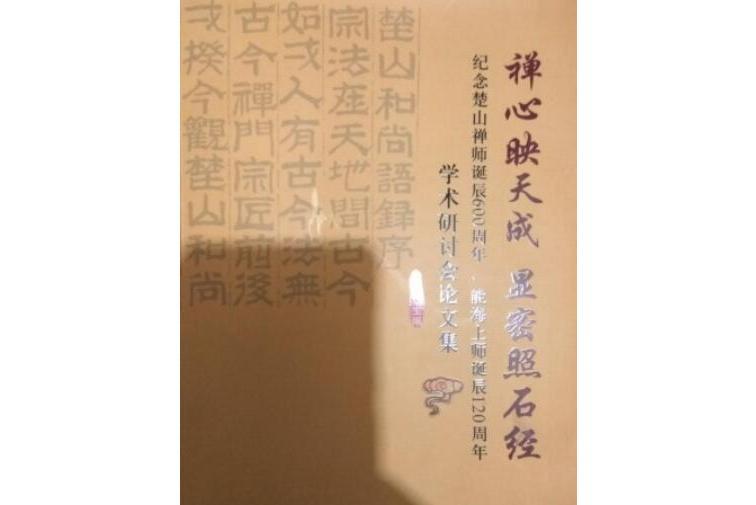 禅心映天成 显密照石经
纪念楚山禅师诞辰600周年、能海上师诞辰120周年
学术研讨会论文集
楚山和尚語録序
宗法在天地間古今
如或人有古今法無
古今禪門宗匠前後
或揆今觀楚山和尚